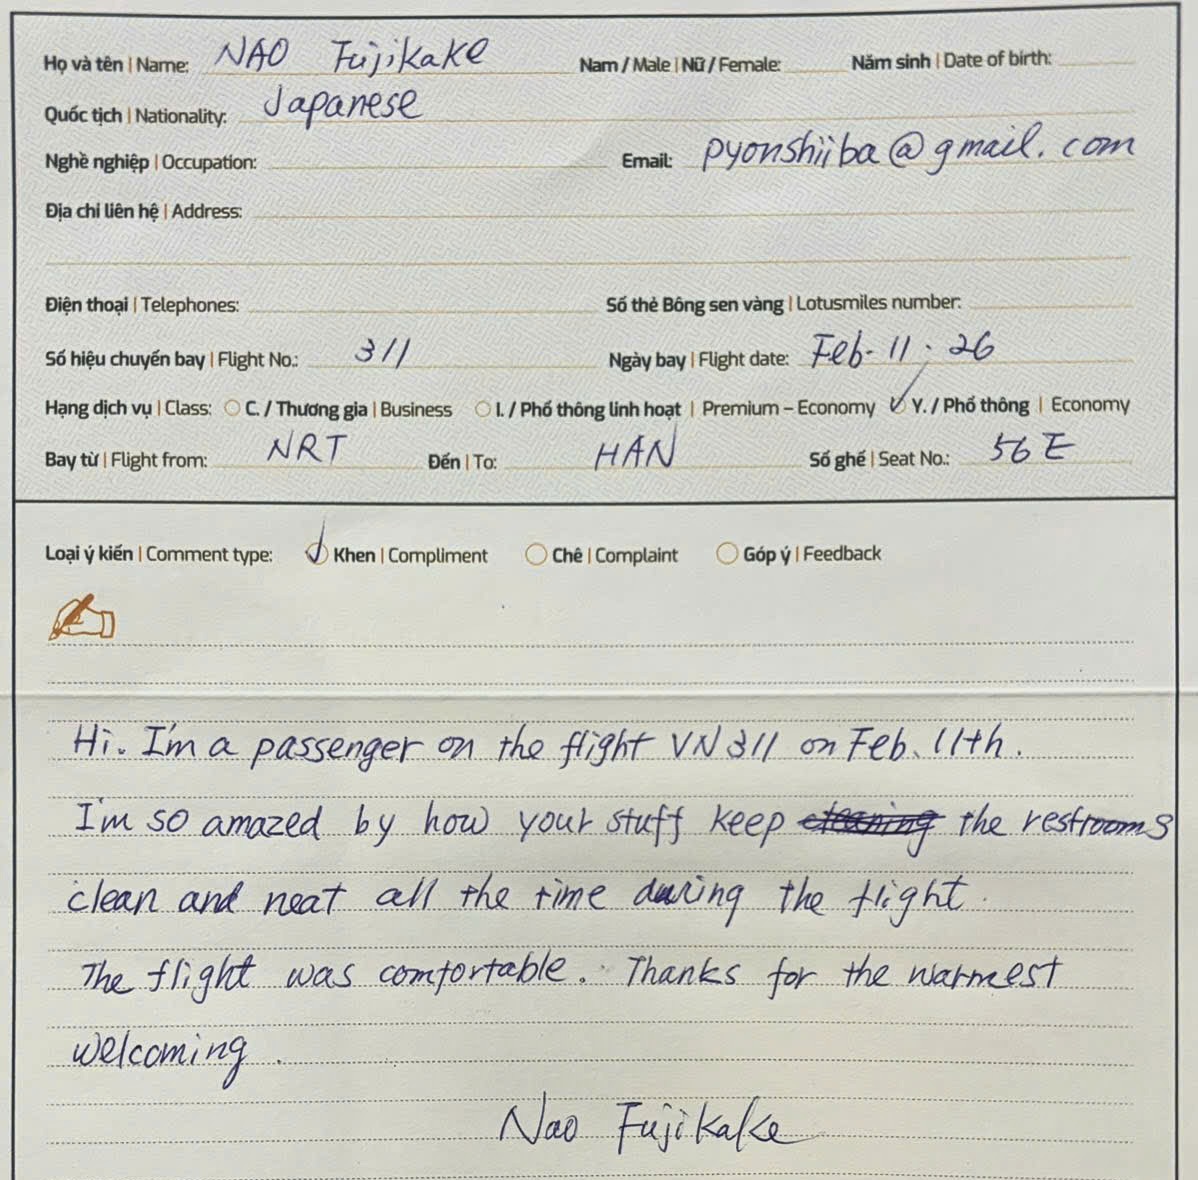 Họ và tên | Name: NAO Fujikake Nam / Male | Nữ / Female: Năm sinh | Date of birth:
Quốc tịch | Nationality: Japanese
Nghề nghiệp | Occupation: Email: pyonshiiba@gmail.com
Địa chỉ liên hệ | Address:
Điện thoại | Telephones: Số thẻ Bông sen vàng | Lotusmiles number:
Số hiệu chuyến bay | Flight No.: 311 Ngày bay | Flight date: Feb. 11. 26
Hạng dịch vụ | Class: C. / Thương gia | Business I. / Phổ thông linh hoạt | Premium – Economy Y. / Phổ thông | Economy
Bay từ | Flight from: NRT Đến | To: HAN Số ghế | Seat No.: 56E
Loại ý kiến | Comment type: Khen | Compliment Chê | Complaint Góp ý | Feedback
Hi. I'm a passenger on the flight VN311 on Feb. 11th.
I'm so amazed by how your stuff keep cleaning the restrooms
clean and neat all the time during the flight.
The flight was comfortable. Thanks for the warmest
welcoming.
Nao Fujikake